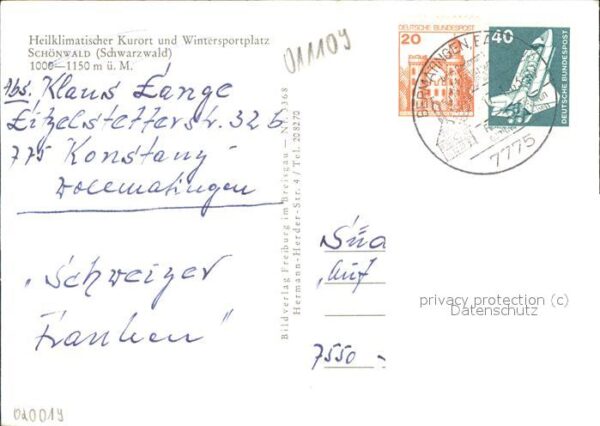 Heilklimatischer Kurort und Wintersportplatz
SCHÖNWALD (Schwarzwald)
1000–1150 m ü. M.
011109
DEUTSCHE BUNDESPOST
20
40
DEUTSCHE BUNDESPOST
7775
Abs. Klaus Lange
Litzelstetterstr. 32 b
775 Konstanz
Wollmatingen
"Schweizer
Franken"
Bildverlag Freiburg im Breisgau – Nr. 3368
Hermann-Herder-Str. 4 / Tel. 208270
"Auf
7550 -
privacy protection (c)
Datenschutz
010019